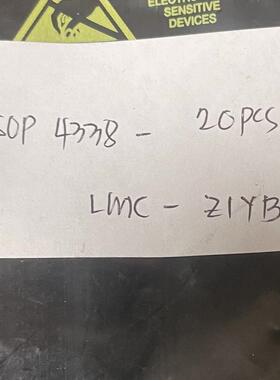 SENSITIVE
DEVICES
SOP 4338 - 20PCS
LMC - Z1YB